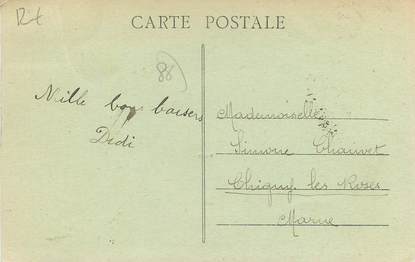 Rt
CARTE POSTALE
86
Mille bons baisers
Didi
Mademoiselle
Simone Chauvet
Chigny les Roses
Marne